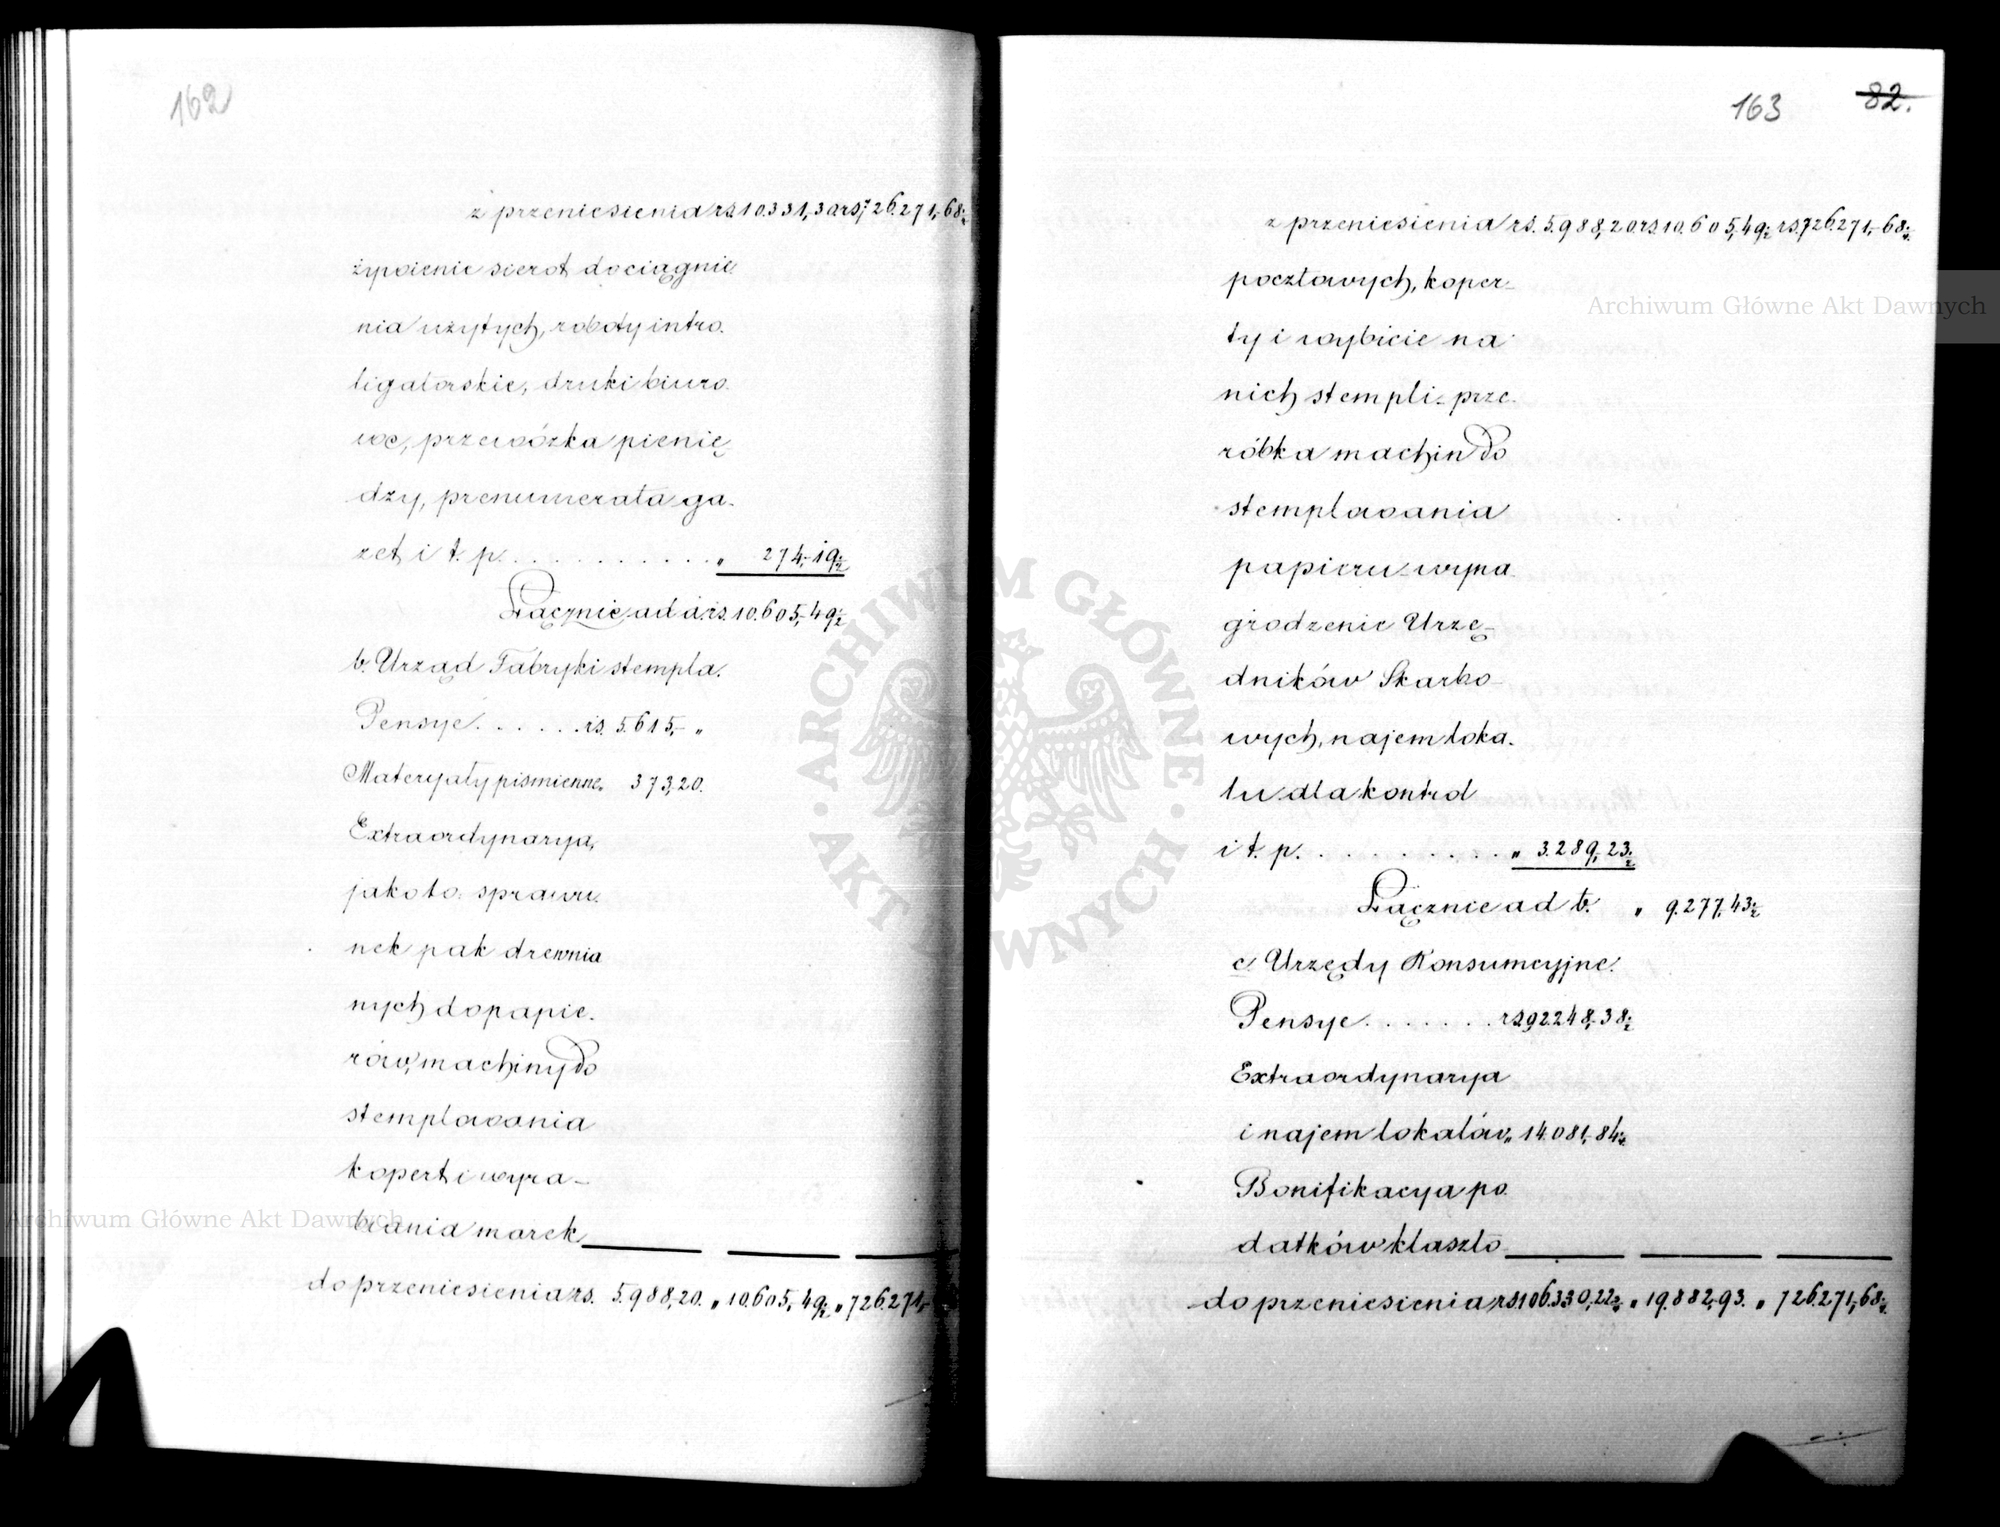 162
z przeniesienia rs. 10.331,30 rs. 726.271,68½
żywienie sierot do ciągnie-
nia użytych, roboty intro-
ligatorskie, druki biuro-
we, przewózka pienię-
dzy, prenumerata ga-
zet i t. p. . . . . . . . . . . „ 274,19½
Łącznie ad a. rs. 10.605,49½
b. Urząd Fabryki stempla.
Pensye . . . . . rs. 5.615,- „
Materyały piśmienne „ 373,20.
Extraordynarya,
jako to: sprawu-
nek pak drewnia
nych do papie-
rów, machiny do
stemplowania
kopert i wyra-
biania marek
do przeniesienia rs. 5.988,20. „ 10.605,49½ „ 726.271,-
163 82.
z przeniesienia rs. 5.988,20 rs. 10.605,49½ rs. 726.271,68½
pocztowych, koper-
ty i wybicie na
nich stempli - prze-
róbka machin do
stemplowania
papieru - wyna-
grodzenie Urzę-
dników Skarbo-
wych, najem loka-
lu dla kontrol
i t. p. . . . . . . . . . „ 3.289,23½
Łącznie ad b. „ 9.277,43½
c. Urzędy Konsumcyjne.
Pensye . . . . . . . rs. 92.248,38½
Extraordynarya
i najem lokalów „ 14.081,84½
Bonifikacya po-
datków klaszto-
do przeniesienia rs. 106.330,22½ „ 19.882,93. „ 726.271,68½
Archiwum Główne Akt Dawnych
Archiwum Główne Akt Dawnych
· ARCHIWUM GŁÓWNE · AKT DAWNYCH